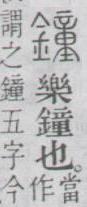 鐘樂鐘也。當
作
謂之鐘五字今